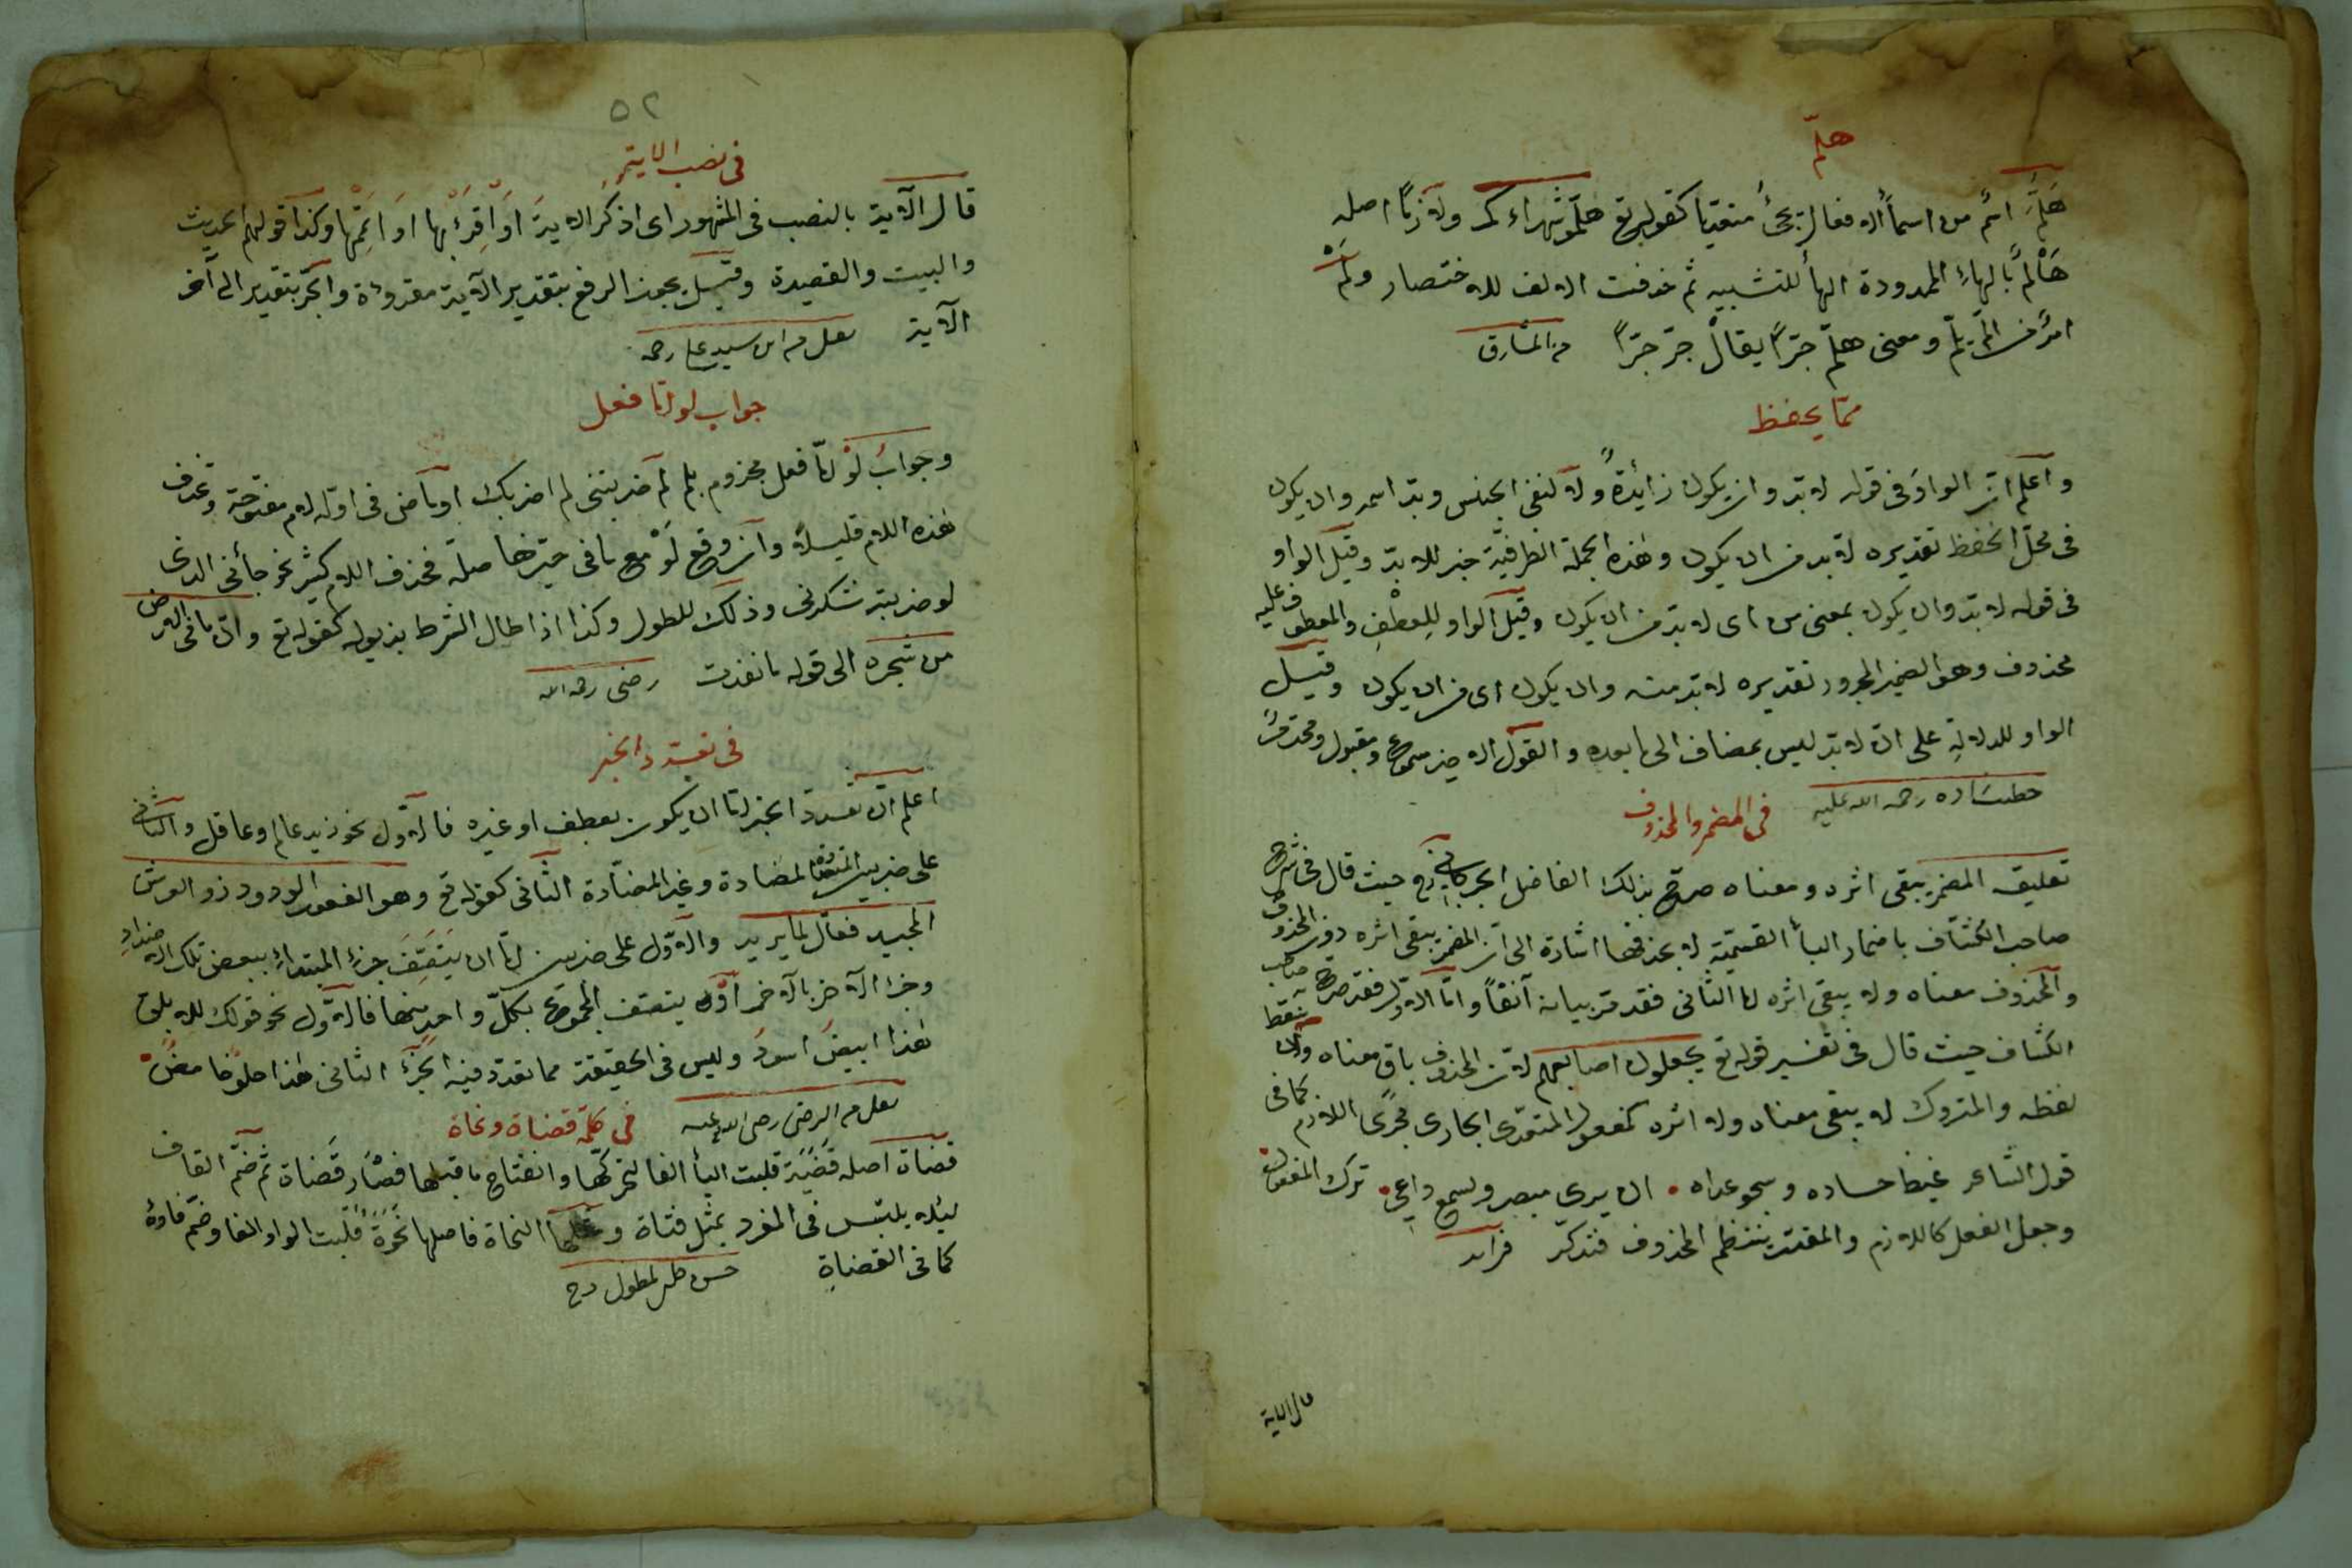 هلمّ
هَلُمَّ اسم من اسماء الافعال يجئ متعديا كقوله تع هلمّ شهداءكم ولازما اصله
هَالُمَّ بالهاء الممدودة الهاء للتنبيه ثم حذفت الالف للاختصار ولُمَّ
امر من لمّ يلمّ ومعنى هلمّ جرّاً يقال جرّ جرّاً من المشارق
ممّا يحفظ
واعلم ان الواو فى قوله لا بد وان يكون زائدة ولا لنفى الجنس وبدّ اسمه وان يكون
فى محلّ الخفظ تقديره لا بد من ان يكون وهذه الجملة الظرفيّة خبر للابدّ وقيل الواو
فى قوله لا بدّ وان يكون بمعنى من اى لا بدّ من ان يكون وقيل الواو للعطف والمعطوف عليه
محذوف وهو الضمير المجرور تقديره لا بدّ منه وان يكون اى من ان يكون وقيل
الواو للدلالة على انّ لا بدّ ليس بمضاف الى ما بعده والقول الاخير مسموع ومقبول
رحمة الله عليه
فى المضمر والمحذوف
تعليق المضمر يبقى اثره ومعناه صرّح بذلك الفاضل حيث قال فى شرح
صاحب الكشّاف باضمار الباء القسميّة لا بحذفها اشارة الى انّ المضمر يبقى اثره دون المحذوف
والمحذوف معناه ولا يبقى اثره امّا الثانى فقد مرّ بيانه آنفاً وامّا الاوّل فقد صرّح به صاحب
الكشّاف حيث قال فى تفسير قوله تع يجعلون اصابعهم لانّ المحذوف باق معناه وان سقط
لفظه والمتروك لا يبقى معناه ولا اثره كمفعول المتعدّى الجارى مجرى اللازم كما فى
قول الشاعر غيظ حساده وسجو عداه ان يرى مبصر ويسمع واعى ترك المفعول
وجعل الفعل كاللازم والمقدّر ينتظم المحذوف فتدكّر
قال الاية
٥٢
فى نصب الاية
قال الآية بالنصب فى المشهور اى اذكر الاية او اقرء بها او اتمّها وكذا قولهم الحديث
والبيت والقصيدة وقيل يجوز الرفع بتقدير الآية مقروءة والجرّ بتقدير الى آخر
الآية نقل من ابن سيد على رحمه
جواب لو امّا فعل
وجواب لو امّا فعل مجزوم بلم لم ضربتنى لم اضربك او ماض فى اوله لام مفتوحة وتحذف
هذه اللام قليلا وان وقع لو مع ما فى حيّزها صلة فحذف اللام كثير نحو جائنى الذى
لو ضربته شكرنى وذلك للطول وكذا اذا طال الشرط بذيوله كقوله تع وان ما فى الارض
من شجره الى قوله ما نفدت رضى رحمه الله
فى تعدد الخبر
اعلم انّ تعدد الخبر امّا ان يكون بعطف او غيره فالاوّل نحو زيد عالم وعاقل والثانى
على ضربين المضادة وغير المضادة الثانى كقوله تع وهو الغفور الودود ذو العرش
المجيد فعّال لما يريد والاوّل على ضربين امّا ان يتّصف جزء المبتداء ببعض تلك الاضداد
وجزء الاخر بالاخر اولا يتصف المجموع بكلّ واحد منها فالاوّل نحو قولك للابلق
هذا ابيض اسود وليس فى الحقيقة مما تعدد فيه الخبر الثانى هذا حلو حامض
نقل من الرضى رضى الله عنه
فى كلمة قضاة ونحاة
قضاة اصله قَضَيَة قلبت الياء الفا لتحركّها وانفتاح ما قبلها فصار قَضاة ثم ضمّ القاف
لئلا يلتبس فى المفرد بمثل فتاة النحاة فاصلها نَحَوَة قلبت الواو الفا وضمّ فاؤه
كما فى القضاة